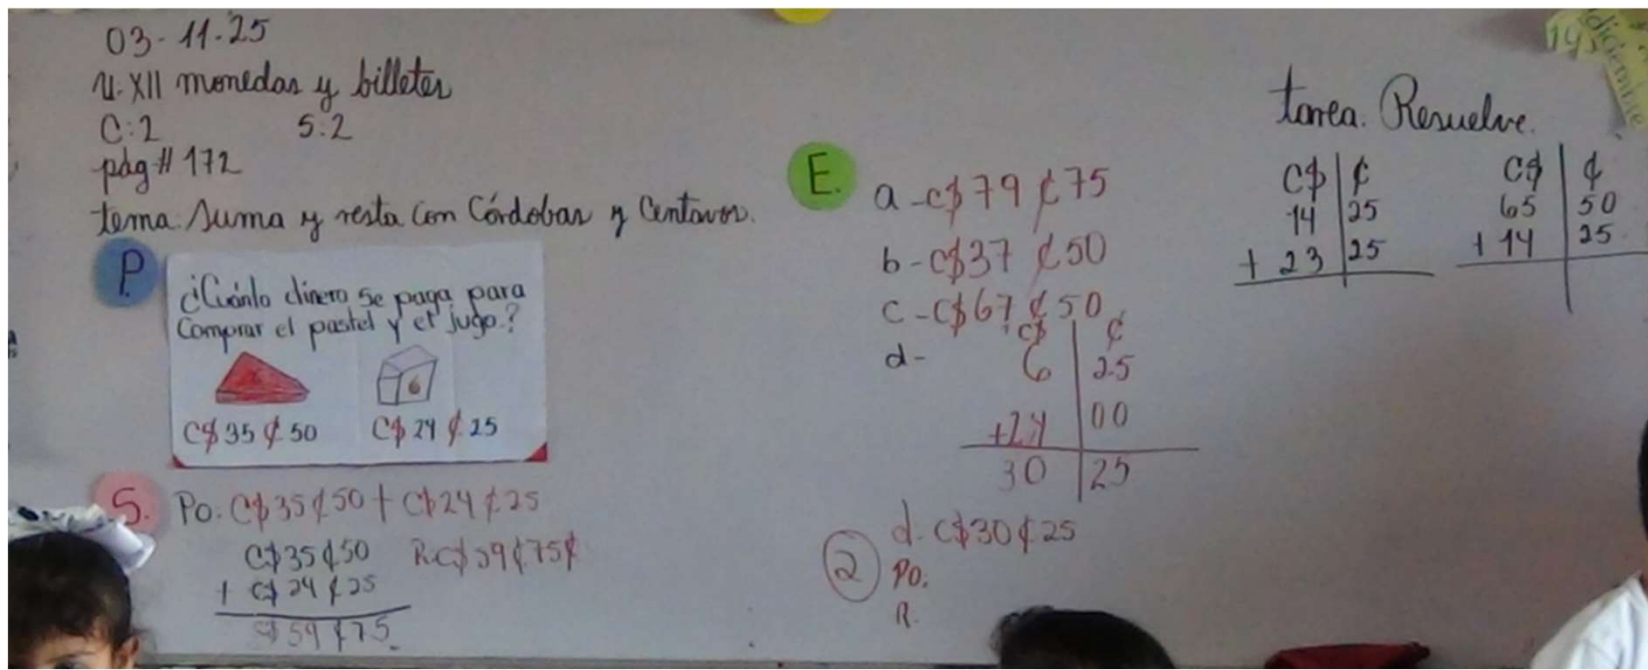 03-11-25
U: XII monedas y billetes
C:2 S:2
pág # 172
tema: Suma y resta con Córdobas y Centavos.
P.
¿Cuánto dinero se paga para
Comprar el pastel y el jugo?
C$ 35 ¢ 50 C$ 24 ¢ 25
S. Po: C$35 ¢50 + C$24 ¢25
C$35 ¢50 R: C$59 ¢75¢
+ C$ 24 ¢25
C$ 59 ¢75
E. a - C$79 ¢75
b - C$37 ¢50
c - C$67 ¢50
d - C$ ¢
6 25
+24 00
30 25
d. C$30 ¢25
2 PO:
R.
tarea. Resuelve.
C$ ¢ C$ ¢
14 25 65 50
+ 23 25 + 14 25